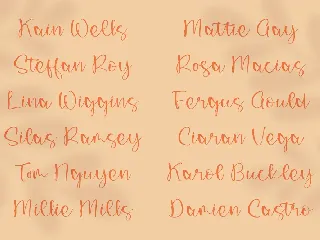 Kain Wells
Steffan Roy
Lina Wiggins
Silas Ramsey
Tom Nguyen
Millie Mills
Mattie Gay
Rosa Macias
Fergus Gould
Ciaran Vega
Karol Buckley
Damien Castro